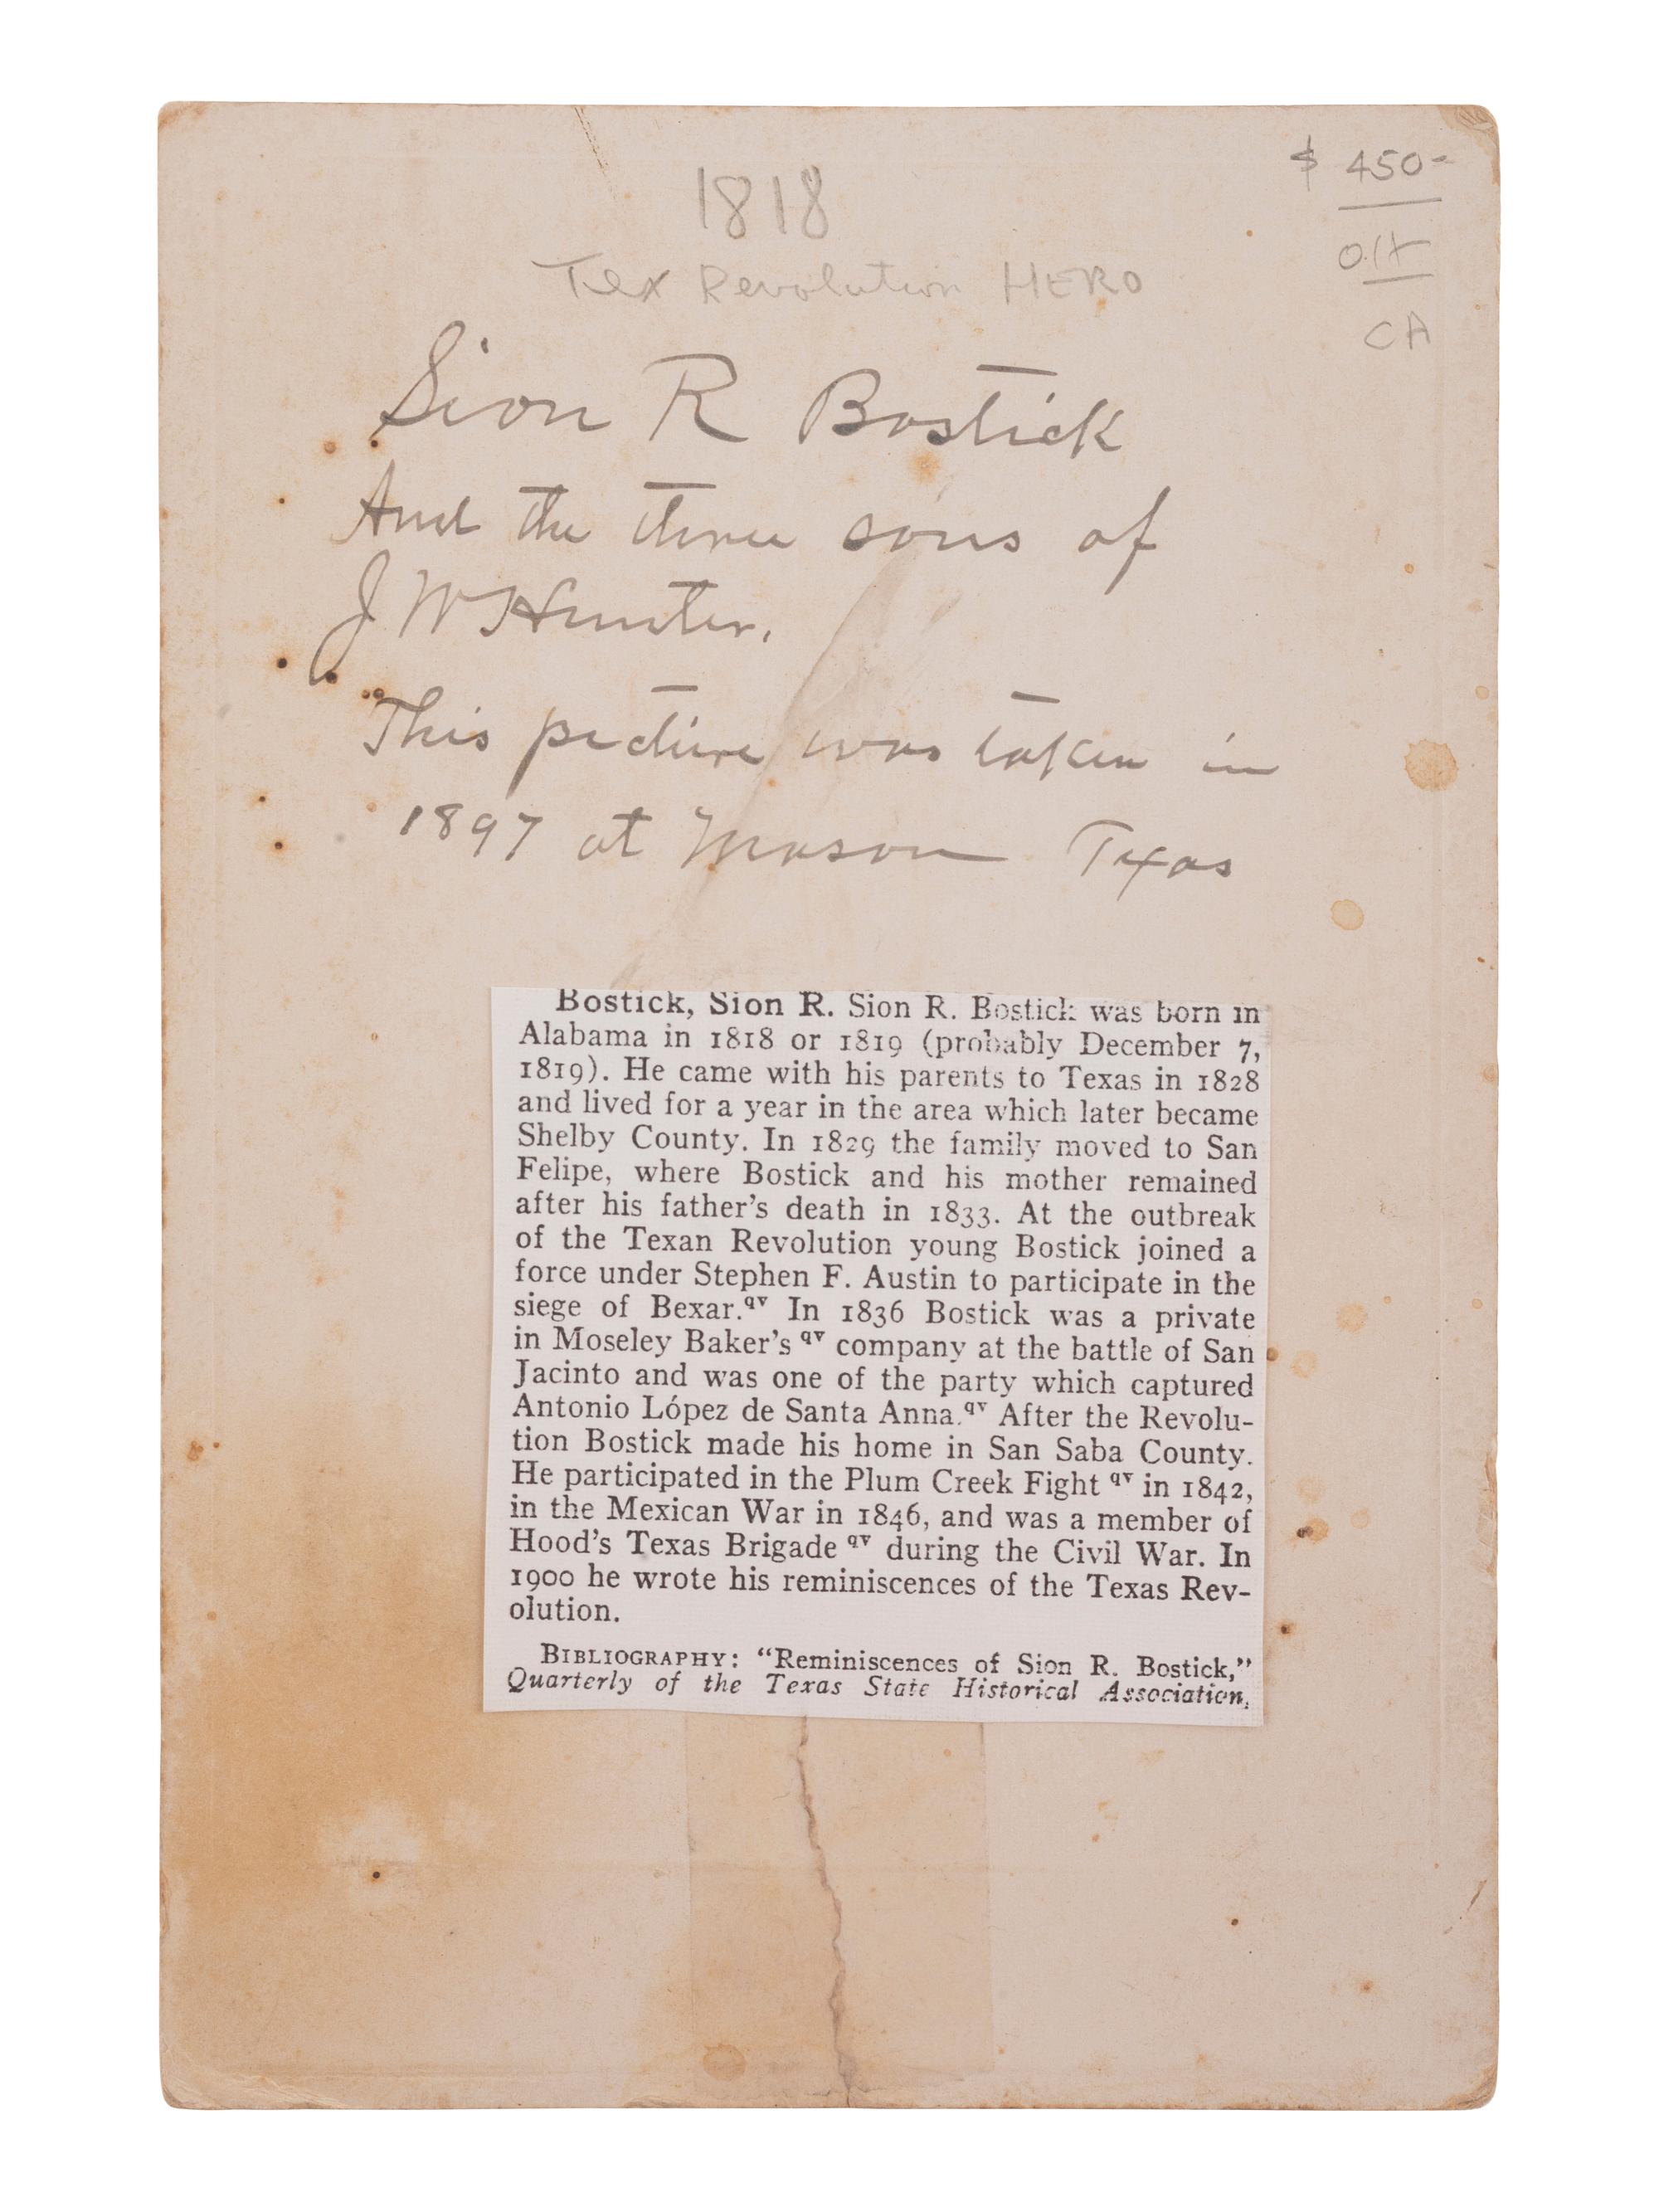 1818
$ 450-
Tex Revolution HERO
CA
Sion R Bostick
And the three sons of
J W Hunter.
This picture was taken in
1897 at Mason Texas
Bostick, Sion R. Sion R. Bostick was born in
Alabama in 1818 or 1819 (probably December 7,
1819). He came with his parents to Texas in 1828
and lived for a year in the area which later became
Shelby County. In 1829 the family moved to San
Felipe, where Bostick and his mother remained
after his father's death in 1833. At the outbreak
of the Texan Revolution young Bostick joined a
force under Stephen F. Austin to participate in the
siege of Bexar.qv In 1836 Bostick was a private
in Moseley Baker's qv company at the battle of San
Jacinto and was one of the party which captured
Antonio López de Santa Anna.qv After the Revolu-
tion Bostick made his home in San Saba County.
He participated in the Plum Creek Fight qv in 1842,
in the Mexican War in 1846, and was a member of
Hood's Texas Brigade qv during the Civil War. In
1900 he wrote his reminiscences of the Texas Rev-
olution.
BIBLIOGRAPHY: "Reminiscences of Sion R. Bostick,"
Quarterly of the Texas State Historical Association,